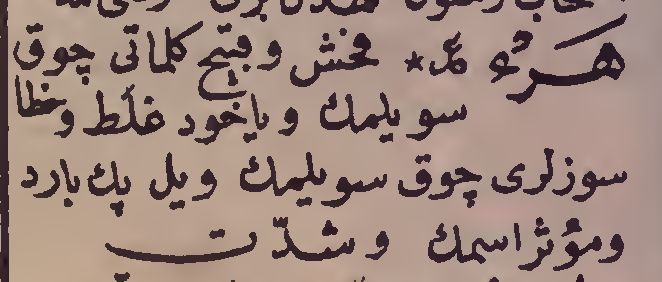 هرء ع‍ * فحش و قبيح كلماتى چوق
سويلمك وياخود غلط وخطا
سوزلرى چوق سويلمك ويل پك بارد
ومؤثر اسمك وشدّت